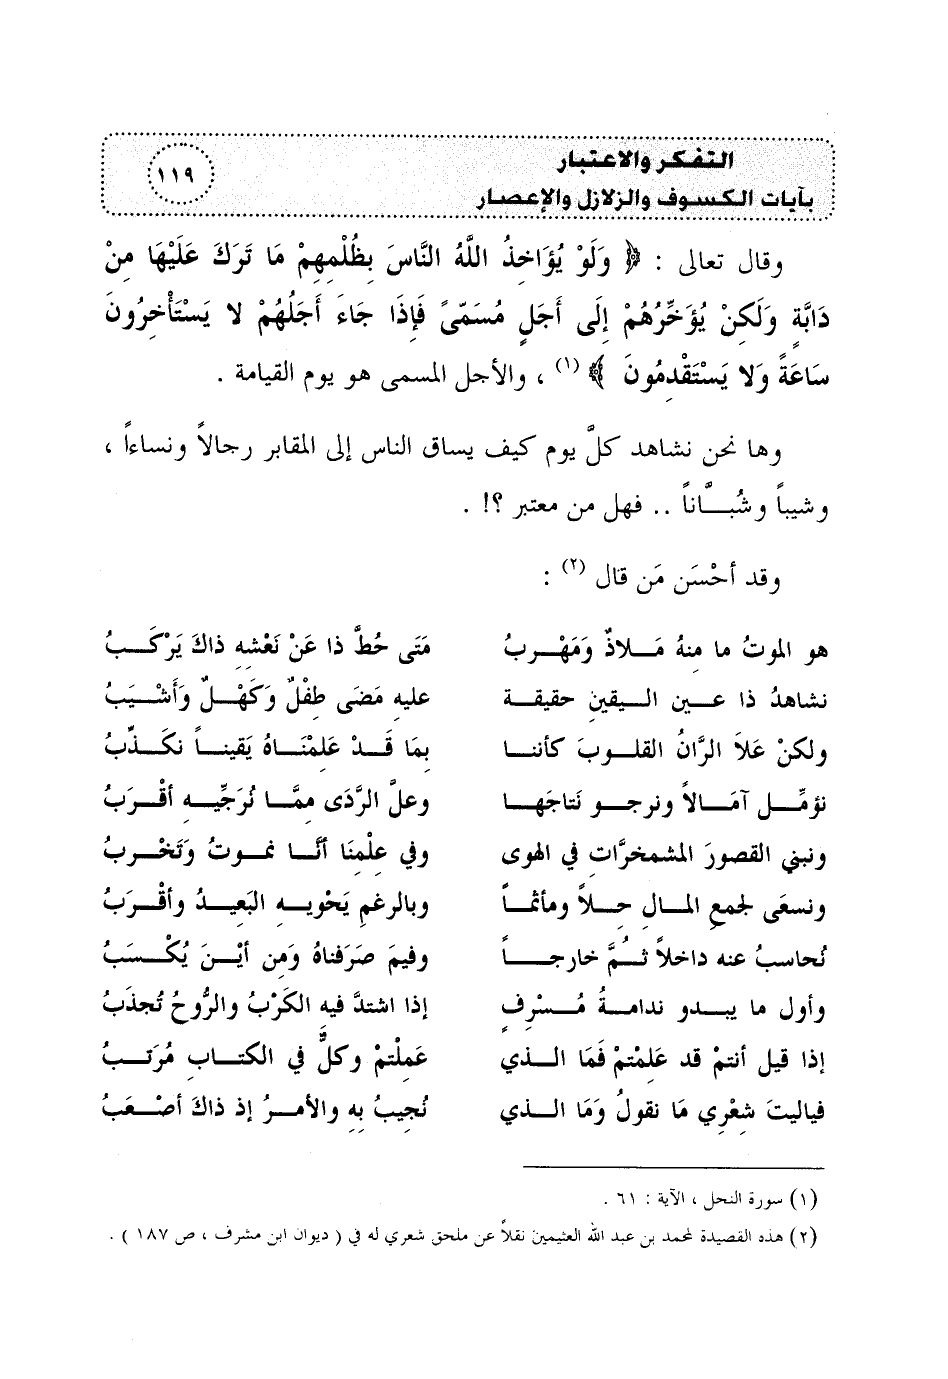 التفكر والاعتبار
بآيات الكسوف والزلازل والإعصار
١١٩
وقال تعالى : ﴿ وَلَوْ يُؤَاخِذُ اللَّهُ النَّاسَ بِظُلْمِهِمْ مَا تَرَكَ عَلَيْهَا مِنْ
دَابَّةٍ وَلَكِنْ يُؤَخِّرُهُمْ إِلَى أَجَلٍ مُسَمّىً فَإِذَا جَاءَ أَجَلُهُمْ لا يَسْتَأْخِرُونَ
سَاعَةً وَلا يَسْتَقْدِمُونَ ﴾ (١) ، والأجل المسمى هو يوم القيامة .
وها نحن نشاهد كلَّ يوم كيف يساق الناس إلى المقابر رجالاً ونساءاً ،
وشيباً وشُبَّاناً .. فهل من معتبر ؟! .
وقد أحْسَن مَن قال (٢) :
هو الموتُ ما منهُ مَلاذٌ وَمَهْربُ مَتَى حُطَّ ذا عَنْ نَعْشِهِ ذاكَ يَرْكَبُ
نشاهدُ ذا عينِ اليقينِ حقيقة عليهِ مَضَى طِفْلٌ وَكَهْلٌ وَأَشْيَبُ
ولكنْ عَلاَ الرَّانُ القلوبَ كأننا بِمَا قَدْ عَلِمْنَاهُ يَقيناً نكَذِّبُ
نؤمِّل آمَالاً ونرجو نَتاجَها وعلَّ الرَّدَى مِمَّا نُرَجِّيهِ أقْرَبُ
ونبني القصورَ المشمخرَّاتِ في الهوى وفي عِلْمِنَا أنَّا نموتُ وَتَخْربُ
ونسعَى لجمعِ المالِ حِلاً ومأثماً وبالرغمِ يَحْويهِ البَعيدُ وأقْرَبُ
نُحاسبُ عنه داخلاً ثُمَّ خارجاً وفيمَ صَرَفناهُ وَمِن أيْنَ يُكْسَبُ
وأول ما يبدو ندامةُ مُسْرِفٍ إذا اشتدَّ فيهِ الكَرْبُ والرُّوحُ تُجذَبُ
إذا قيل أنتمْ قد عَلِمْتمْ فَمَا الذي عَمِلْتمْ وكلٌّ في الكتابِ مُرَتبُ
فياليتَ شعْرِي مَا نقولُ وَمَا الذي نُجيبُ بِهِ والأمرُ إذ ذاكَ أصْعَبُ
(١) سورة النحل ، الآية : ٦١ .
(٢) هذه القصيدة لمحمد بن عبد الله العثيمين نقلاً عن ملحق شعري له في ( ديوان ابن مشرف ، ص ١٨٧ ) .